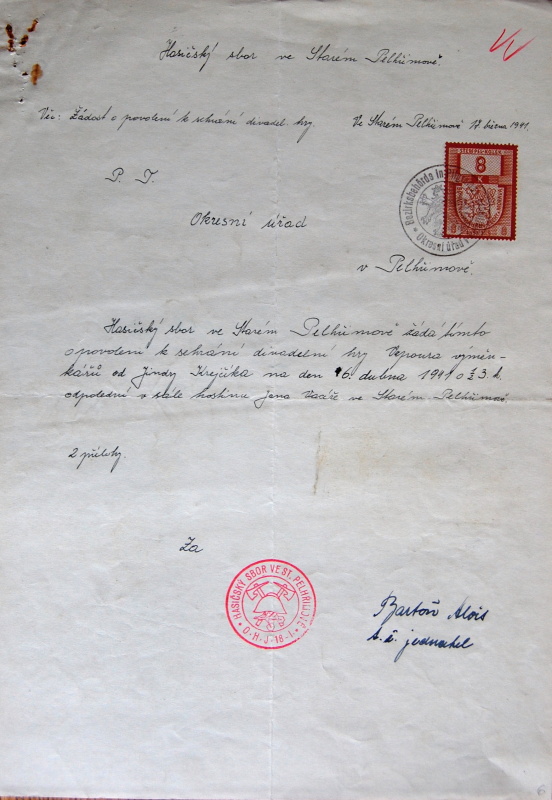 Hasičský sbor ve Starém Pelhřimově.
Věc: Žádost o povolení k sehrání divadel. hry.
Ve Starém Pelhřimově 17. března 1941.
STEMPEL-KOLEK
8
K
Bezirksbehörde
Okresní úřad
P. T.
Okresní úřad
v Pelhřimově.
Hasičský sbor ve Starém Pelhřimově žádá tímto
o povolení k sehrání divadelní hry Vzpoura výmin-
kářů od Jindy Krejčíka na den 6. dubna 1941 o ½3. h.
odpolední v sále hostince Jana ve Starém Pelhřimově.
2 přílohy.
Za
HASIČSKÝ SBOR VE ST. PELHŘIMOVĚ
O·H·J·18·I·
Bartoň Alois
t. č. jednatel
6